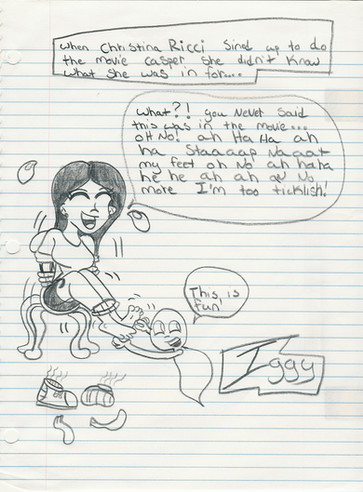 when Christina Ricci Sind up to do
the movie casper she didn't know
what she was in for....
What?! you Never said
this was in the movie...
oH No! ah Ha Ha ah
ha Staaaap Naaat
my feet oh No ah haha
he he ah ah No
more I'm too ticklish!
This is
fun
Iggy